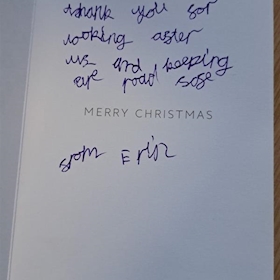 thank you for
looking after
us and keeping
road safe
MERRY CHRISTMAS
from Erin